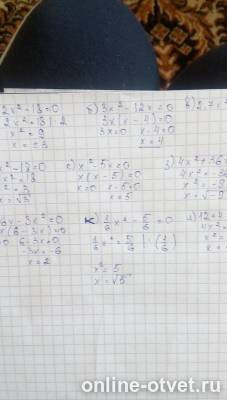 2x² - 18 = 0
2x² = 18 | 2
x² = 9
x = ±3
б) 3x² - 12x = 0
3x(x - 4) = 0
3x = 0 x - 4 = 0
x = 4
в) 2,7x²
x² = 3
x = √3
е) x² - 5x = 0
x(x - 5) = 0
x = 0 x - 5 = 0
x = 5
з) 4x² + 36 =
4x² = -36
x² = -9
x = √-9
6x - 3x² = 0
x(6 - 3x) = 0
6 - 3x = 0
-3x = -6
x = 2
к) 1/6 x² - 5/6 = 0
1/6 x² = 5/6 | · (1/6)
x² = 5
x = √5
4x² =
x² =
online-otvet.ru